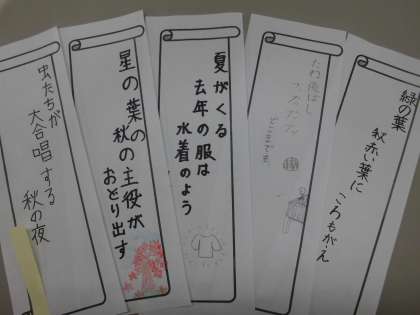 緑の葉
秋赤い葉に
ころもがえ
たね飛ばし
どこまでも
夏がくる
去年の服は
水着のよう
星の葉の
秋の主役が
おどり出す
虫たちが
大合唱する
秋の夜